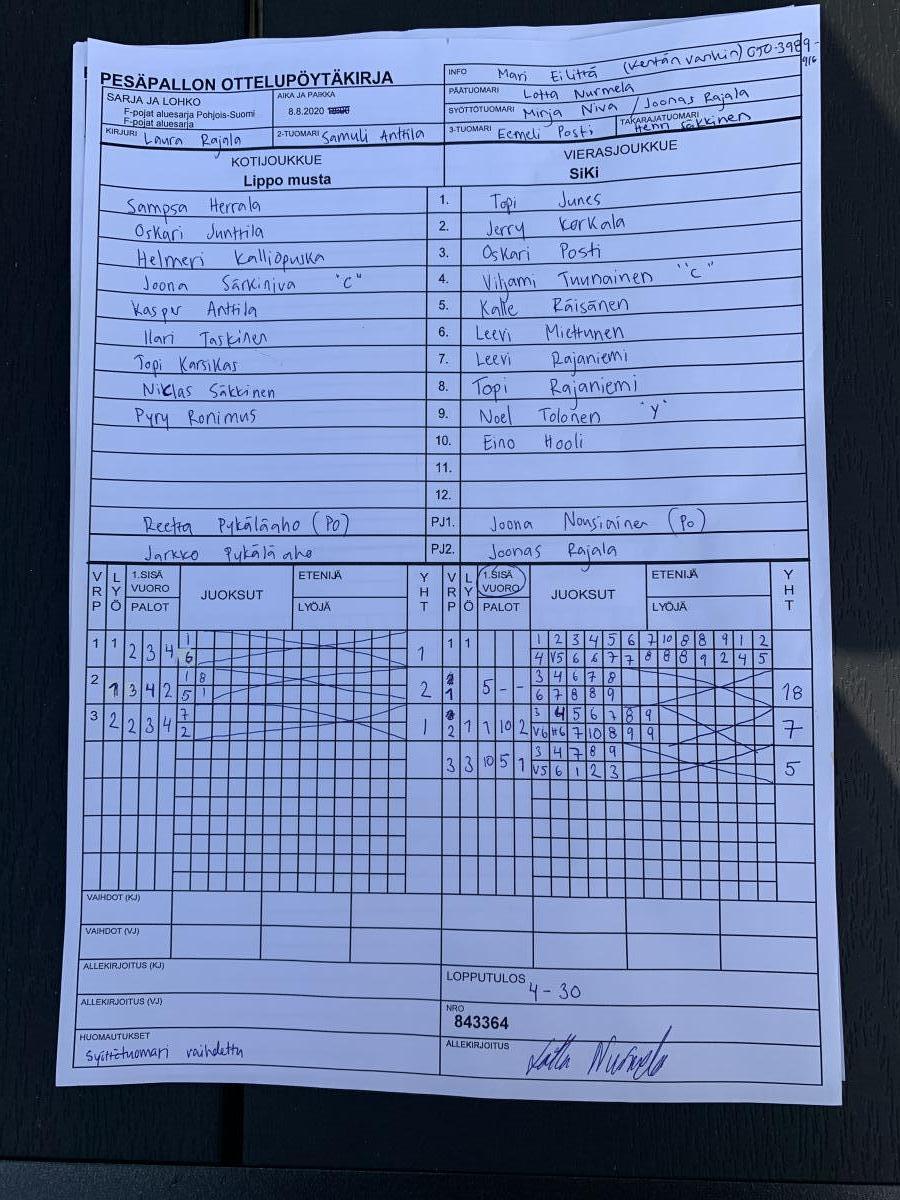 PESÄPALLON OTTELUPÖYTÄKIRJA
INFO Mari Eilittä (Kentän vanhin) 050-3989-
916
PÄÄTUOMARI Lotta Nurmela
SARJA JA LOHKO
F-pojat aluesarja Pohjois-Suomi
F-pojat aluesarja
AIKA JA PAIKKA
8.8.2020
SYÖTTÖTUOMARI Mirja Niva / Joonas Rajala
KIRJURI Laura Rajala
2-TUOMARI Samuli Anttila
3-TUOMARI Eemeli Posti
TAKARAJATUOMARI
Henri Säkkinen
KOTIJOUKKUE VIERASJOUKKUE
Lippo musta SiKi
Sampsa Herrala 1. Topi Junes
Oskari Junttila 2. Jerry Korkala
Helmeri Kalliopuska 3. Oskari Posti
Joona Särkiniva "C" 4. Viljami Tuunainen "C"
Kasper Anttila 5. Kalle Räisänen
Ilari Taskinen 6. Leevi Miettunen
Topi Karsikas 7. Leevi Rajaniemi
Niklas Säkkinen 8. Topi Rajaniemi
Pyry Ronimus 9. Noel Tolonen "Y"
10. Eino Hooli
11.
12.
Reetta Pykäläaho (PO) PJ1. Joona Nousiainen (Po)
Jarkko Pykäläaho PJ2. Joonas Rajala
VRP LYÖ 1.SISÄ VUORO PALOT JUOKSUT ETENIJÄ LYÖJÄ YHT VRP LYÖ 1.SISÄ VUORO PALOT JUOKSUT ETENIJÄ LYÖJÄ YHT
1 1 2 3 4 1 1 1 1 1 2 3 4 5 6 7 10 8 8 9 1 2
6 4 V5 6 6 7 7 8 8 8 9 2 4 5
2 1 3 4 2 1 8 2 1 5 - - 3 4 6 7 8 18
5 1 6 7 8 8 9
3 2 2 3 4 7 1 2 1 1 10 2 3 4 5 6 7 8 9 7
2 V6 H6 7 10 8 9 9
3 3 10 5 1 3 4 7 8 9 5
V5 6 1 2 3
VAIHDOT (KJ)
VAIHDOT (VJ)
ALLEKIRJOITUS (KJ)
LOPPUTULOS
4-30
ALLEKIRJOITUS (VJ)
NRO
843364
HUOMAUTUKSET
Syöttötuomari vaihdettu
ALLEKIRJOITUS Lotta Nurmela